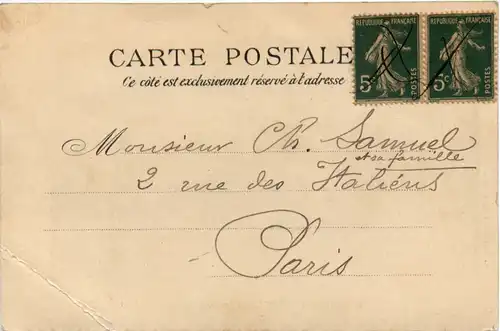 RÉPUBLIQUE FRANÇAISE RÉPUBLIQUE FRANÇAISE
5c POSTES 5c POSTES
CARTE POSTALE
Ce côté est exclusivement réservé à l'adresse
Monsieur Ch. Samuel
et sa famille
2 rue des Italiéns
Paris